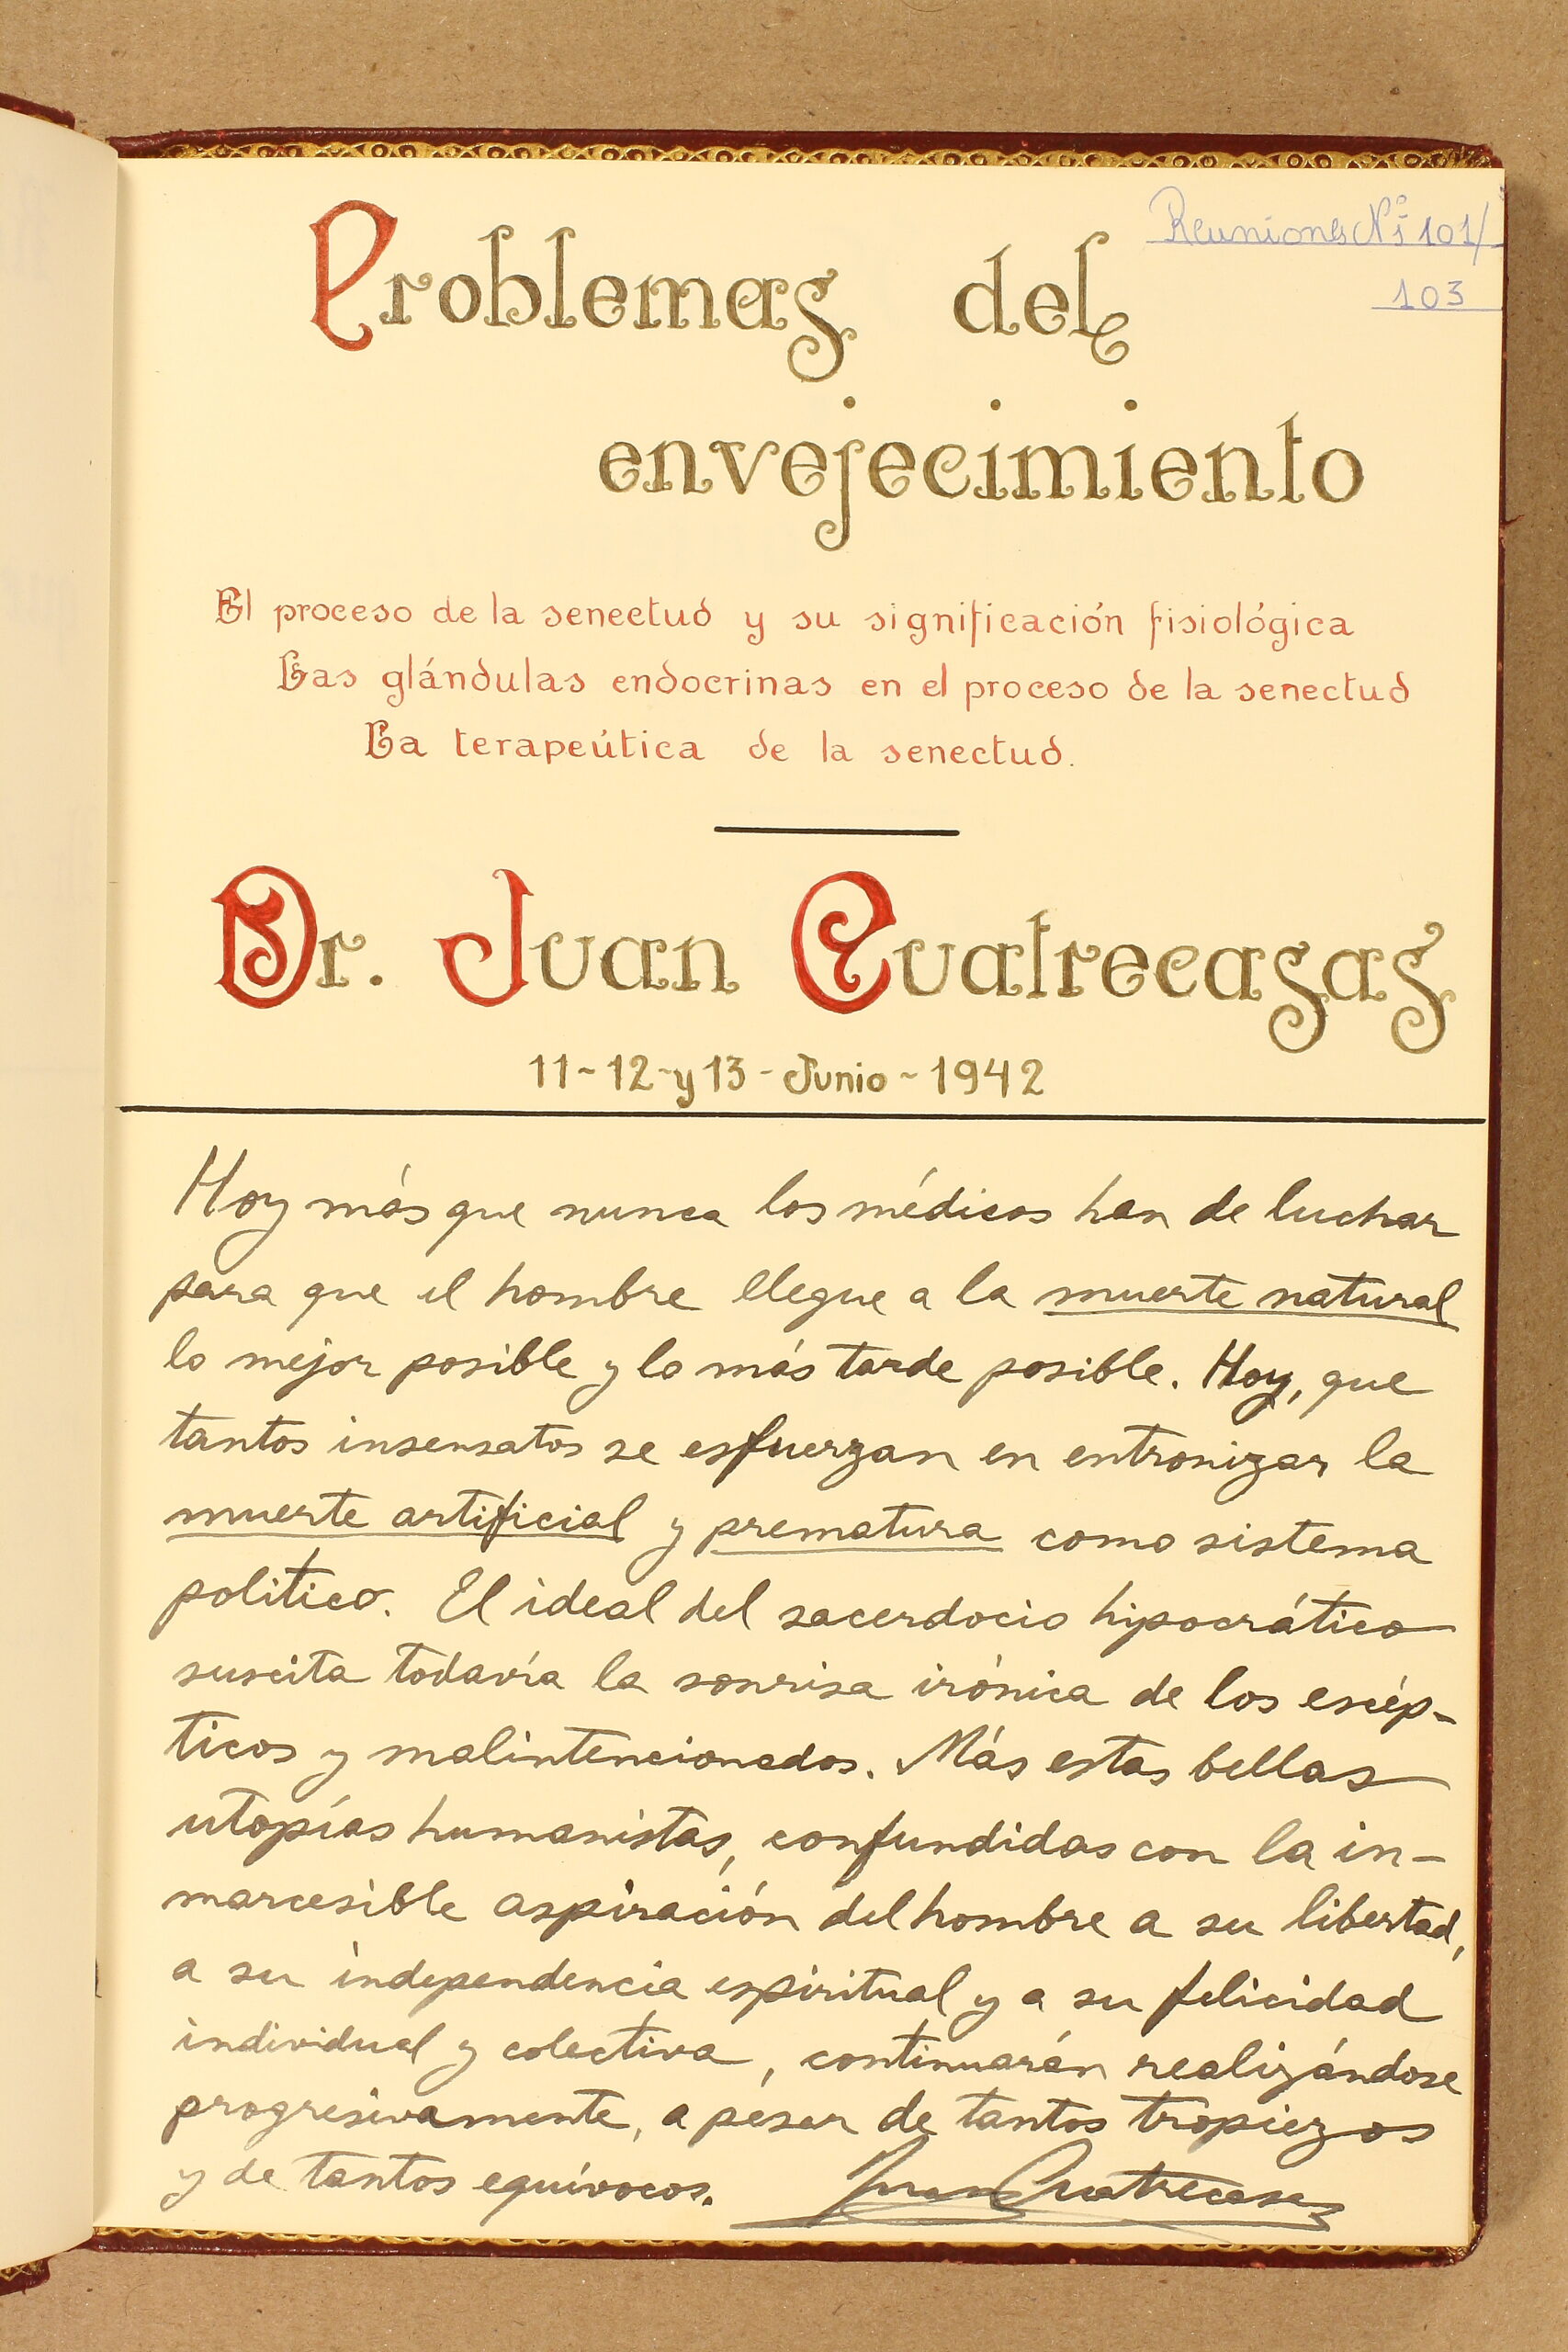 Reuniones Nº 101/
103
Problemas del
envejecimiento
El proceso de la senectud y su significación fisiológica
Las glándulas endocrinas en el proceso de la senectud
La terapeútica de la senectud.
Dr. Juan Cuatrecasas
11-12-y 13-Junio-1942
Hoy más que nunca los médicos han de luchar
para que el hombre llegue a la muerte natural
lo mejor posible y lo más tarde posible. Hoy, que
tantos insensatos se esfuerzan en entronizar la
muerte artificial y prematura como sistema
politico. El ideal del sacerdocio hipocrático
suscita todavía la sonrisa irónica de los escép-
ticos y malintencionados. Más estas bellas
utopías humanistas, confundidas con la in-
marcesible aspiración del hombre a su libertad,
a su independencia espiritual y a su felicidad
individual y colectiva, continuarán realizándose
progresivamente, a pesar de tantos tropiezos
y de tantos equívocos. Juan Cuatrecasas